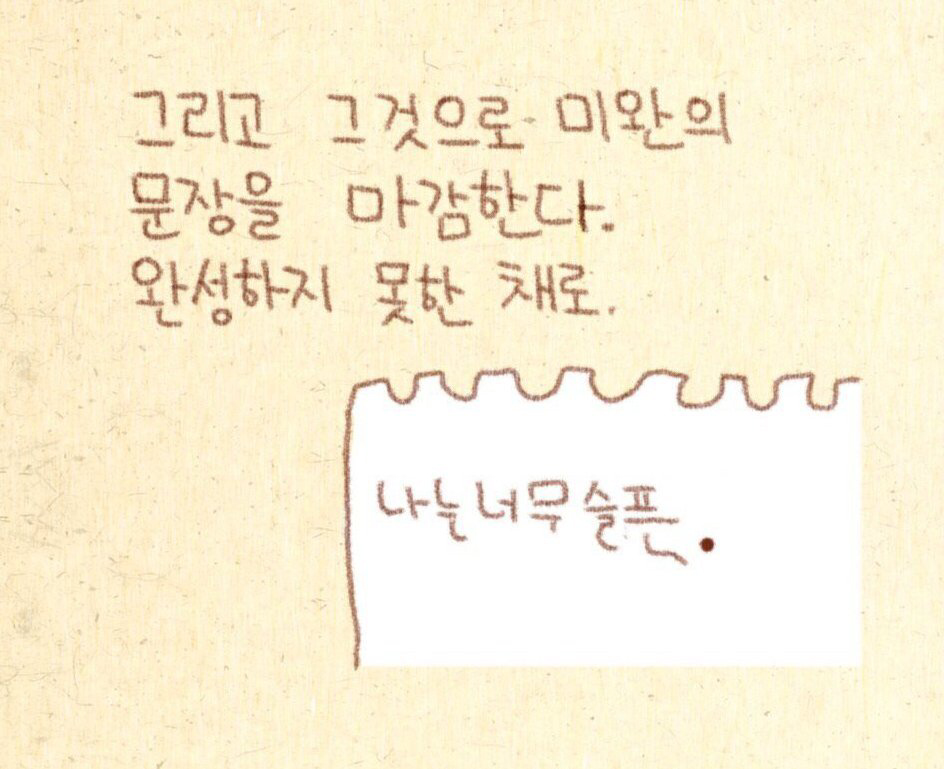 그리고 그것으로 미완의
문장을 마감한다.
완성하지 못한 채로.
나는 너무 슬픈.